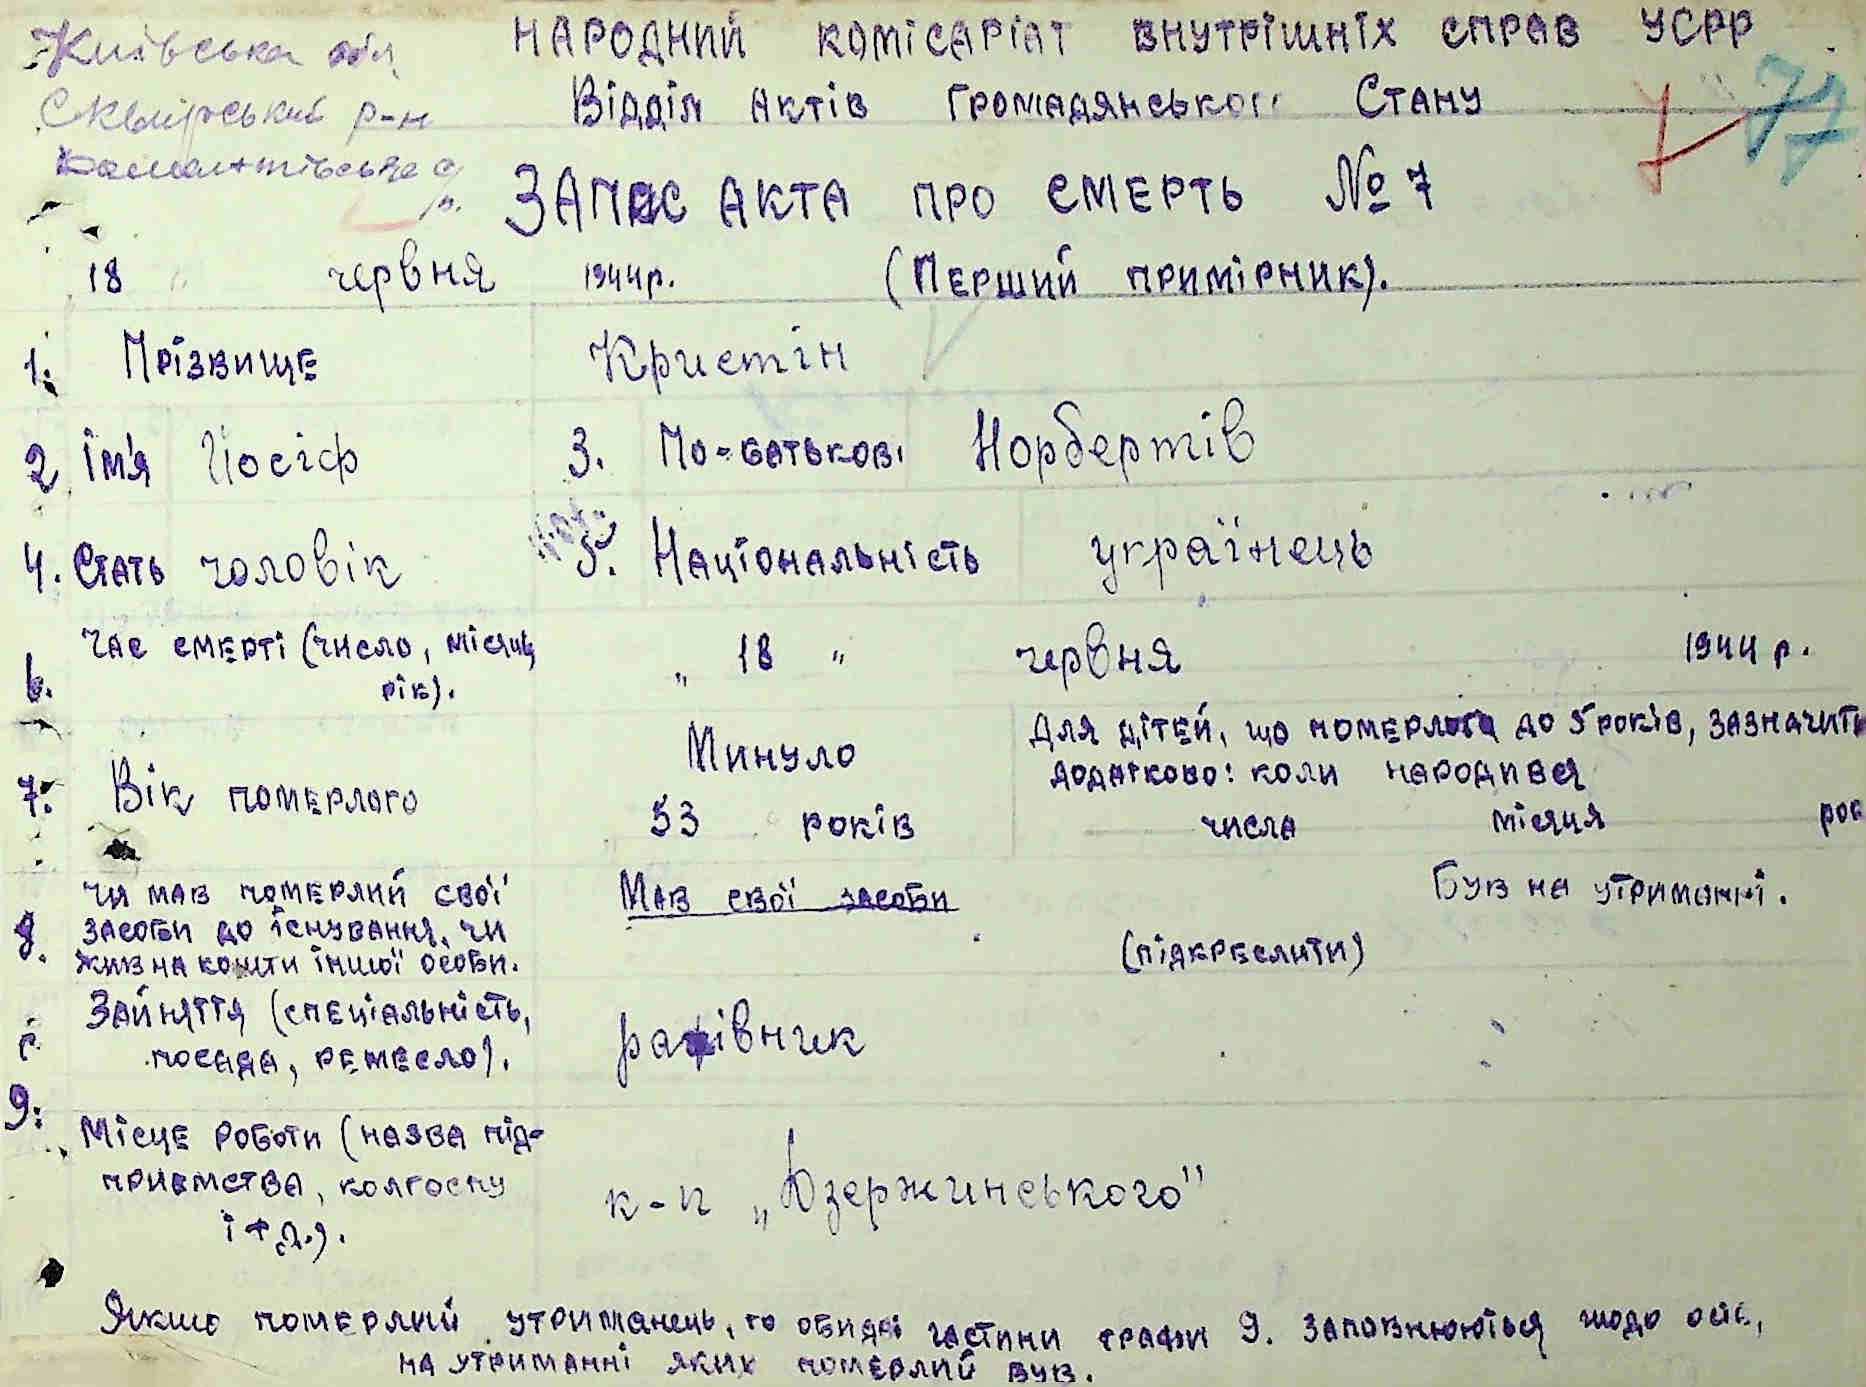 Київська обл
НАРОДНИЙ КОМІСАРІАТ ВНУТРІШНІХ СПРАВ УСРР
Сквирський р-н
Відділ Актів Громадянського Стану
77
ЗАПИС АКТА ПРО СМЕРТЬ № 7
18 червня 1944р. (Перший примірник).
1. Прізвище Кристін
2 Ім'я Йосіф 3. По-батькові Норбертів
4. Стать чоловік 5. Національність українець
6. Час смерті (число, місяць, рік). „ 18 " червня 1944 р.
7. Вік померлого Минуло 53 років
Для дітей, що померлога до 5 років, зазначити
додатково: коли народився
числа місяця рок
8. Чи мав померлий свої
засоби до існування, чи
жив на кошти іншої особи.
Мав свої засоби Був на утриманні.
(підкреслити)
9. Зайняття (спеціальність,
посада, ремесло).
Місце роботи (назва під-
приємства, колгоспу
і т д.).
к-п „Дзержинського"
Якщо померлий утриманець, то обидві частини графи 9. заповнюються щодо осіб,
на утриманні яких померлий був.